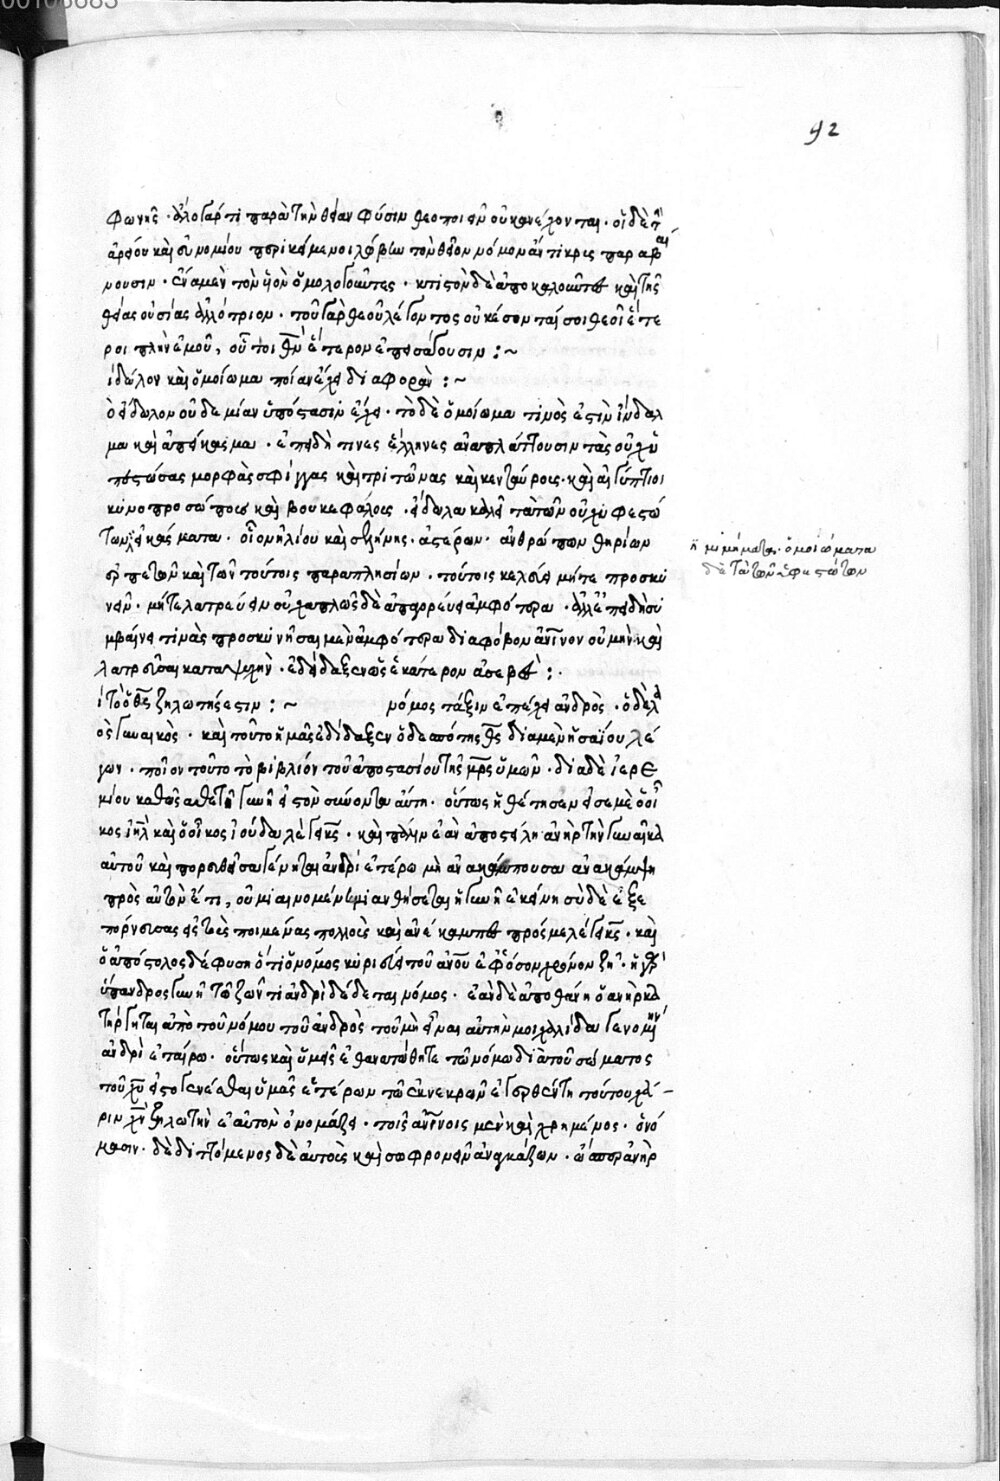 92
φωνῆς · ἄλλο γάρ τι παρὰ τὴν θείαν φύσιν θεοποιεῖν οὐκ ἀνέχονται · οἱ δὲ τὴν
ἀρείου καὶ εὐνομίου περικείμενοι λώβην τὸν θεῖον νόμον ἄντικρις παραβαί
νουσιν · ἕνα μὲν τὸν υἱὸν ὁμολογοῦντες · κτιστὸν δὲ ἀποκαλοῦντες καὶ τῆς
θείας οὐσίας ἀλλότριον · τοῦ γὰρ θεοῦ λέγοντος οὐκ ἔσονταί σοι θεοὶ ἕτε
ροι πλὴν ἐμοῦ, οὗτοι θν ἕτερον ἐπεισάγουσιν :~
ἰδώλον καὶ ὁμοίωμα ποίαν ἔχει διαφοράν :~
ὁ εἴδωλον οὐδεμίαν ὑπόστασιν ἔχει · τὸ δὲ ὁμοίωμα τινός ἐστιν ἴνδαλ
μα καὶ ἀπείκασμα · ἐπειδή τινες ἕλληνες ἀναπλάττουσιν τὰς οὐχ ὑ
φεστώσας μορφὰς σφίγγας καὶ τρίτωνας καὶ κενταύροις · καὶ αἰγύπτιοι
κυνοπροσώποις καὶ βουκεφάλοις · εἴδωλα καλεῖ τὰ τῶν οὐχ ὑφεστώ
των εἰκάσματα · οἷον ἡλίου καὶ σελήνης · ἀστέρων · ἀνθρώπων θηρίων
ἑρπετῶν καὶ τῶν τούτοις παραπλησίων · τούτοις κελεύει μήτε προσκυ
νεῖν · μήτε λατρεύειν οὐχ ἁπλῶς δὲ ἀπαγορεύει ἀμφότερα · ἀλλ' ἐπειδὴ συ
μβαίνει τινὰς προσκυνῆσαι μὲν ἀμφότερα διὰ φόβον ἀνινον οὐ μὴν καὶ
λατρεῦσαι κατὰ ψυχήν · ἐδίδαξεν ὡς ἑκάτερον ἀσεβές :·
ὁ θς ζηλωτής ἐστιν :~ νόμος τάξιν ἐπέχει ἀνδρὸς · ὁ δὲ λαὸς
ὁς γυναικός · καὶ τοῦτο ἡμᾶς ἐδίδαξεν ὁ δεσπότης θς διὰ μὲν ἡσαΐου λέ
γων · ποῖον τοῦτο τὸ βιβλίον τοῦ ἀποστασίου τῆς μρς ὑμῶν · διὰ δὲ ἰερε
μίου καθὼς ἀθετεῖ γυνὴ εἰς τὸν συνόντα αὐτῇ · οὕτως ἠθέτησεν εἰς ἐμὲ ὁ οἶ
κος ιηλ καὶ ὁ οἶκος ἰούδα λέγει κς · καὶ πάλιν ἐὰν ἀποστείλῃ ἀνὴρ τὴν γυναῖκα
αὐτοῦ καὶ πορευθεῖσα γένηται ἀνδρὶ ἑτέρω μὴ ἀνακάμπτουσα ἀνακάμψῃ
πρὸς αὐτὸν ἔτι, οὐ μιαινομένη μιανθήσεται ἡ γυνὴ ἐκείνη σὺ δὲ ἐξε
πόρνευσας εἰς τοὺς ποιμένας πολλοὺς καὶ ἀνέκαμπτες πρός με λέγει κς · καὶ
ὁ ἀπόστολος δέ φησι ὅτι ὁ νόμος κυριεύει τοῦ ἀνου ἐφ' ὅσον χρόνον ζῇ · ἡ γὰρ
ὕπανδρος γυνὴ τῷ ζῶντι ἀνδρὶ δέδεται νόμος · ἐὰν δὲ ἀποθάνῃ ὁ ἀνὴρ κα
τήργηται ἀπὸ τοῦ νόμου τοῦ ἀνδρὸς τοῦ μὴ εἶναι αὐτὴν μοιχαλίδα γενομένην
ἀνδρὶ ἑταίρω · οὕτως καὶ ὑμεῖς ἐθανατώθητε τῷ νόμω διὰ τοῦ σώματος
τοῦ χυ εἰς τὸ γενέσθαι ὑμᾶς ἑτέρων τῷ ἐκ νεκρῶν ἐγερθέντι τούτου χά–
ριν χν ζηλωτὴν ἑαυτὸν ὀνομάζει · τοῖς ἀνινοις μὲν καὶ χρημένος · ὀνό
μασιν · δεδιττόμενος δὲ αὐτοὺς καὶ σωφρονεῖν ἀναγκάζων · ὥσπερ ἀνὴρ
ἢ μιμήματα · ὁμοιώματα
δὲ τὰ τῶν ὑφεστώτων